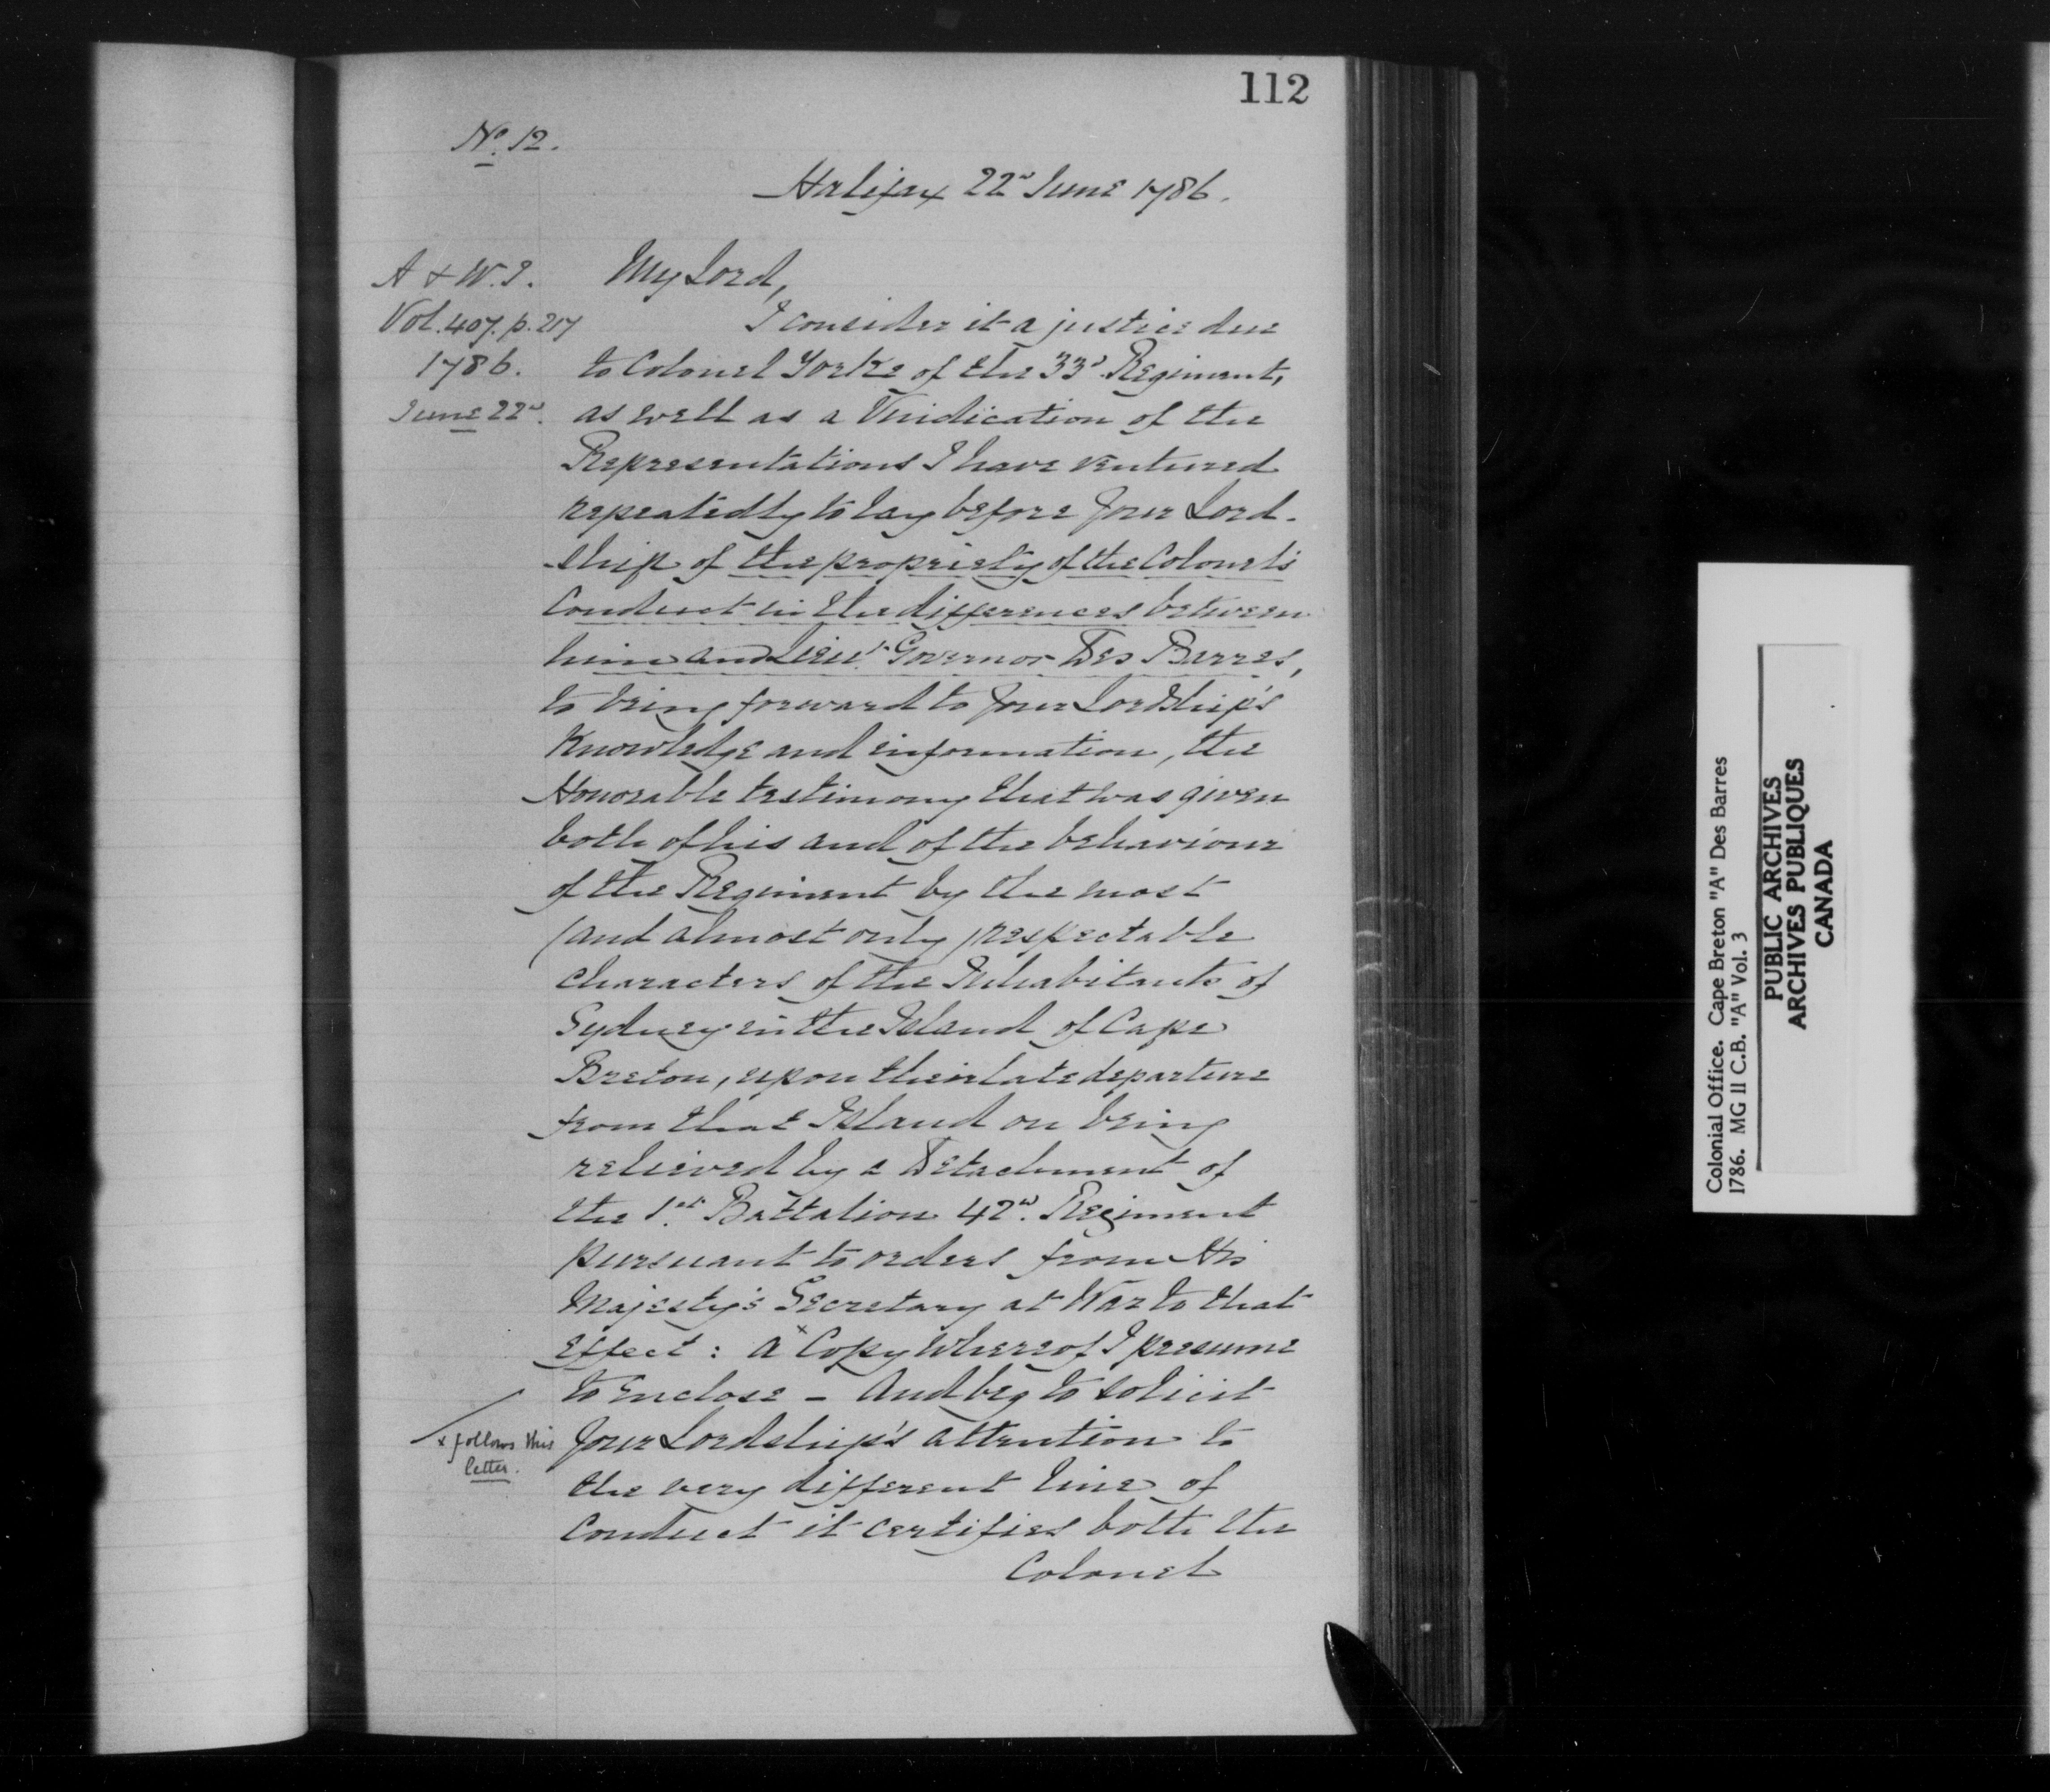 112
No. 12.
Halifax 22d June 1786.
A & W.I.
Vol. 407. p. 217
1786.
June 22d.
My Lord,
I consider it a justice due
to Colonel Yorke of the 33d Regiment,
as well as a Vindication of the
Representations I have ventured
repeatedly to lay before Your Lord-
-ship of the propriety of the Colonel's
Conduct in the differences between
him and Lieut. Governor Des Barres,
to bring forward to Your Lordship's
Knowledge and information, the
Honorable testimony that was given
both of his and of the behaviour
of the Regiment by the most
(and almost only) respectable
characters of the Inhabitants of
Sydney in the Island of Cape
Breton, upon their late departure
from that Island on being
relieved by a Detachment of
the 1st. Battalion 42d. Regiment
pursuant to orders from His
Majesty's Secretary at War to that
Effect: a x Copy Whereof I presume
to Enclose – And beg to solicit
Your Lordship's attention to
the very different line of
Conduct it certifies both the
Colonel
x follows this
letter.
Colonial Office. Cape Breton "A" Des Barres
1786. MG II C.B. "A" Vol. 3
PUBLIC ARCHIVES
ARCHIVES PUBLIQUES
CANADA